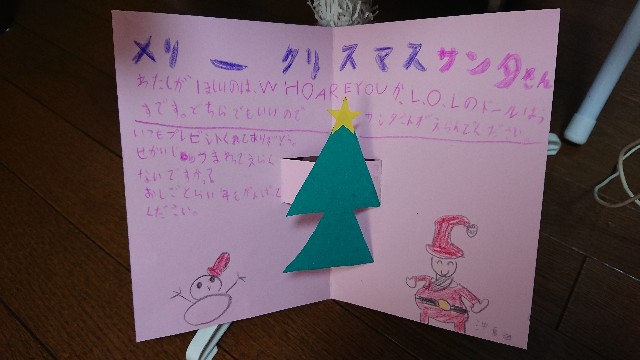 メリークリスマスサンタさん
あたしがほしいのは、WHOAREYOUか、L.O.Lのドールはっ
すです。どちらでもいいので サンタさんがえらんでください。
いつもプレゼントくれてありがとう。
せかいじゅうまわってえらく
ないですか?
おしごとたいへんですががんばって
ください。